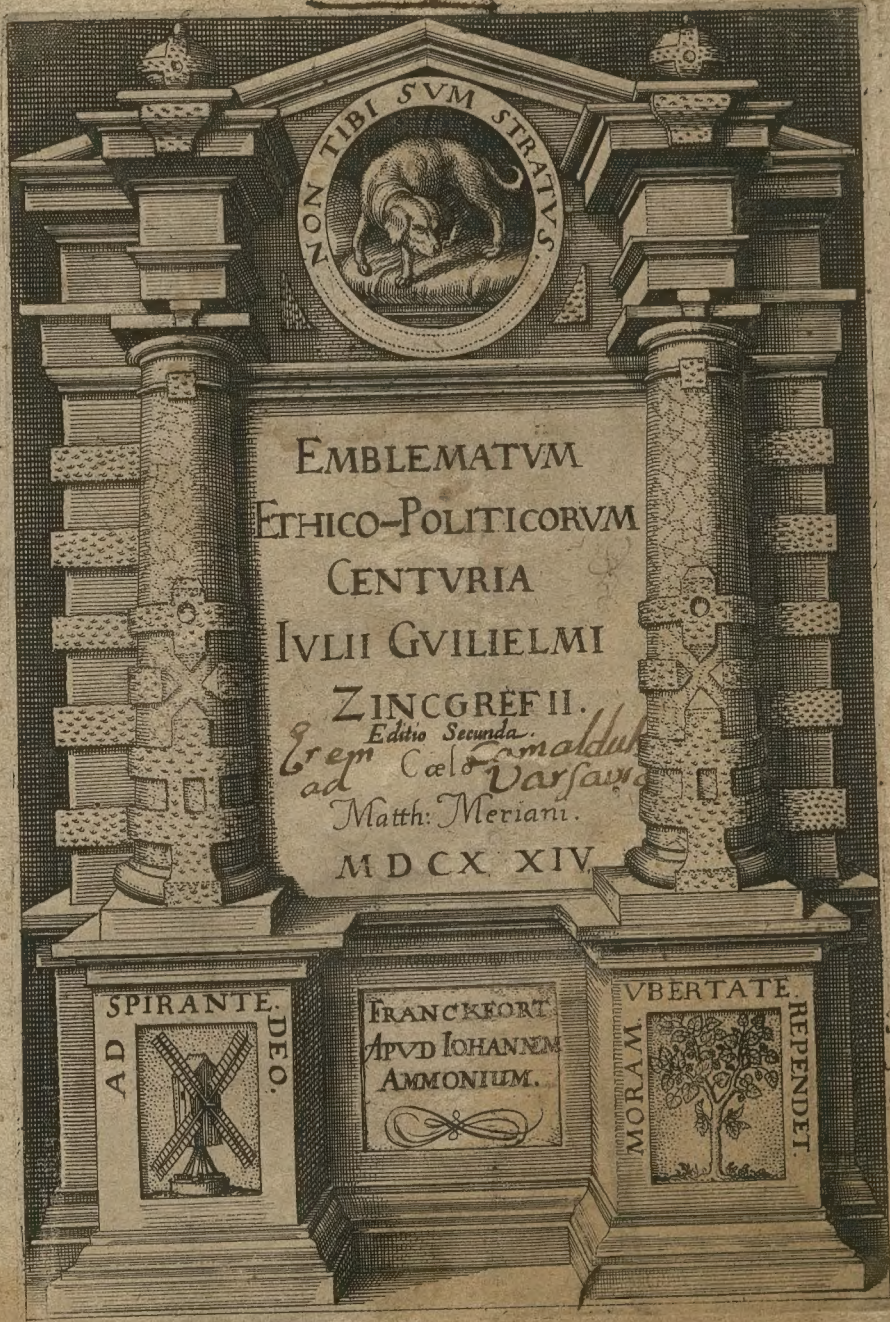 NON TIBI SVM STRATVS.
EMBLEMATVM
ETHICO-POLITICORVM
CENTVRIA
IVLII GVILIELMI
ZINCGREFII.
Editio Secunda.
Erem Camaldul
Cœlo
ad Varsavia
Matth: Meriani.
MDCXXIV
AD SPIRANTE. DEO.
FRANCKFORT
APVD IOHANNEM
AMMONIUM.
MORAM. VBERTATE. REPENDET.